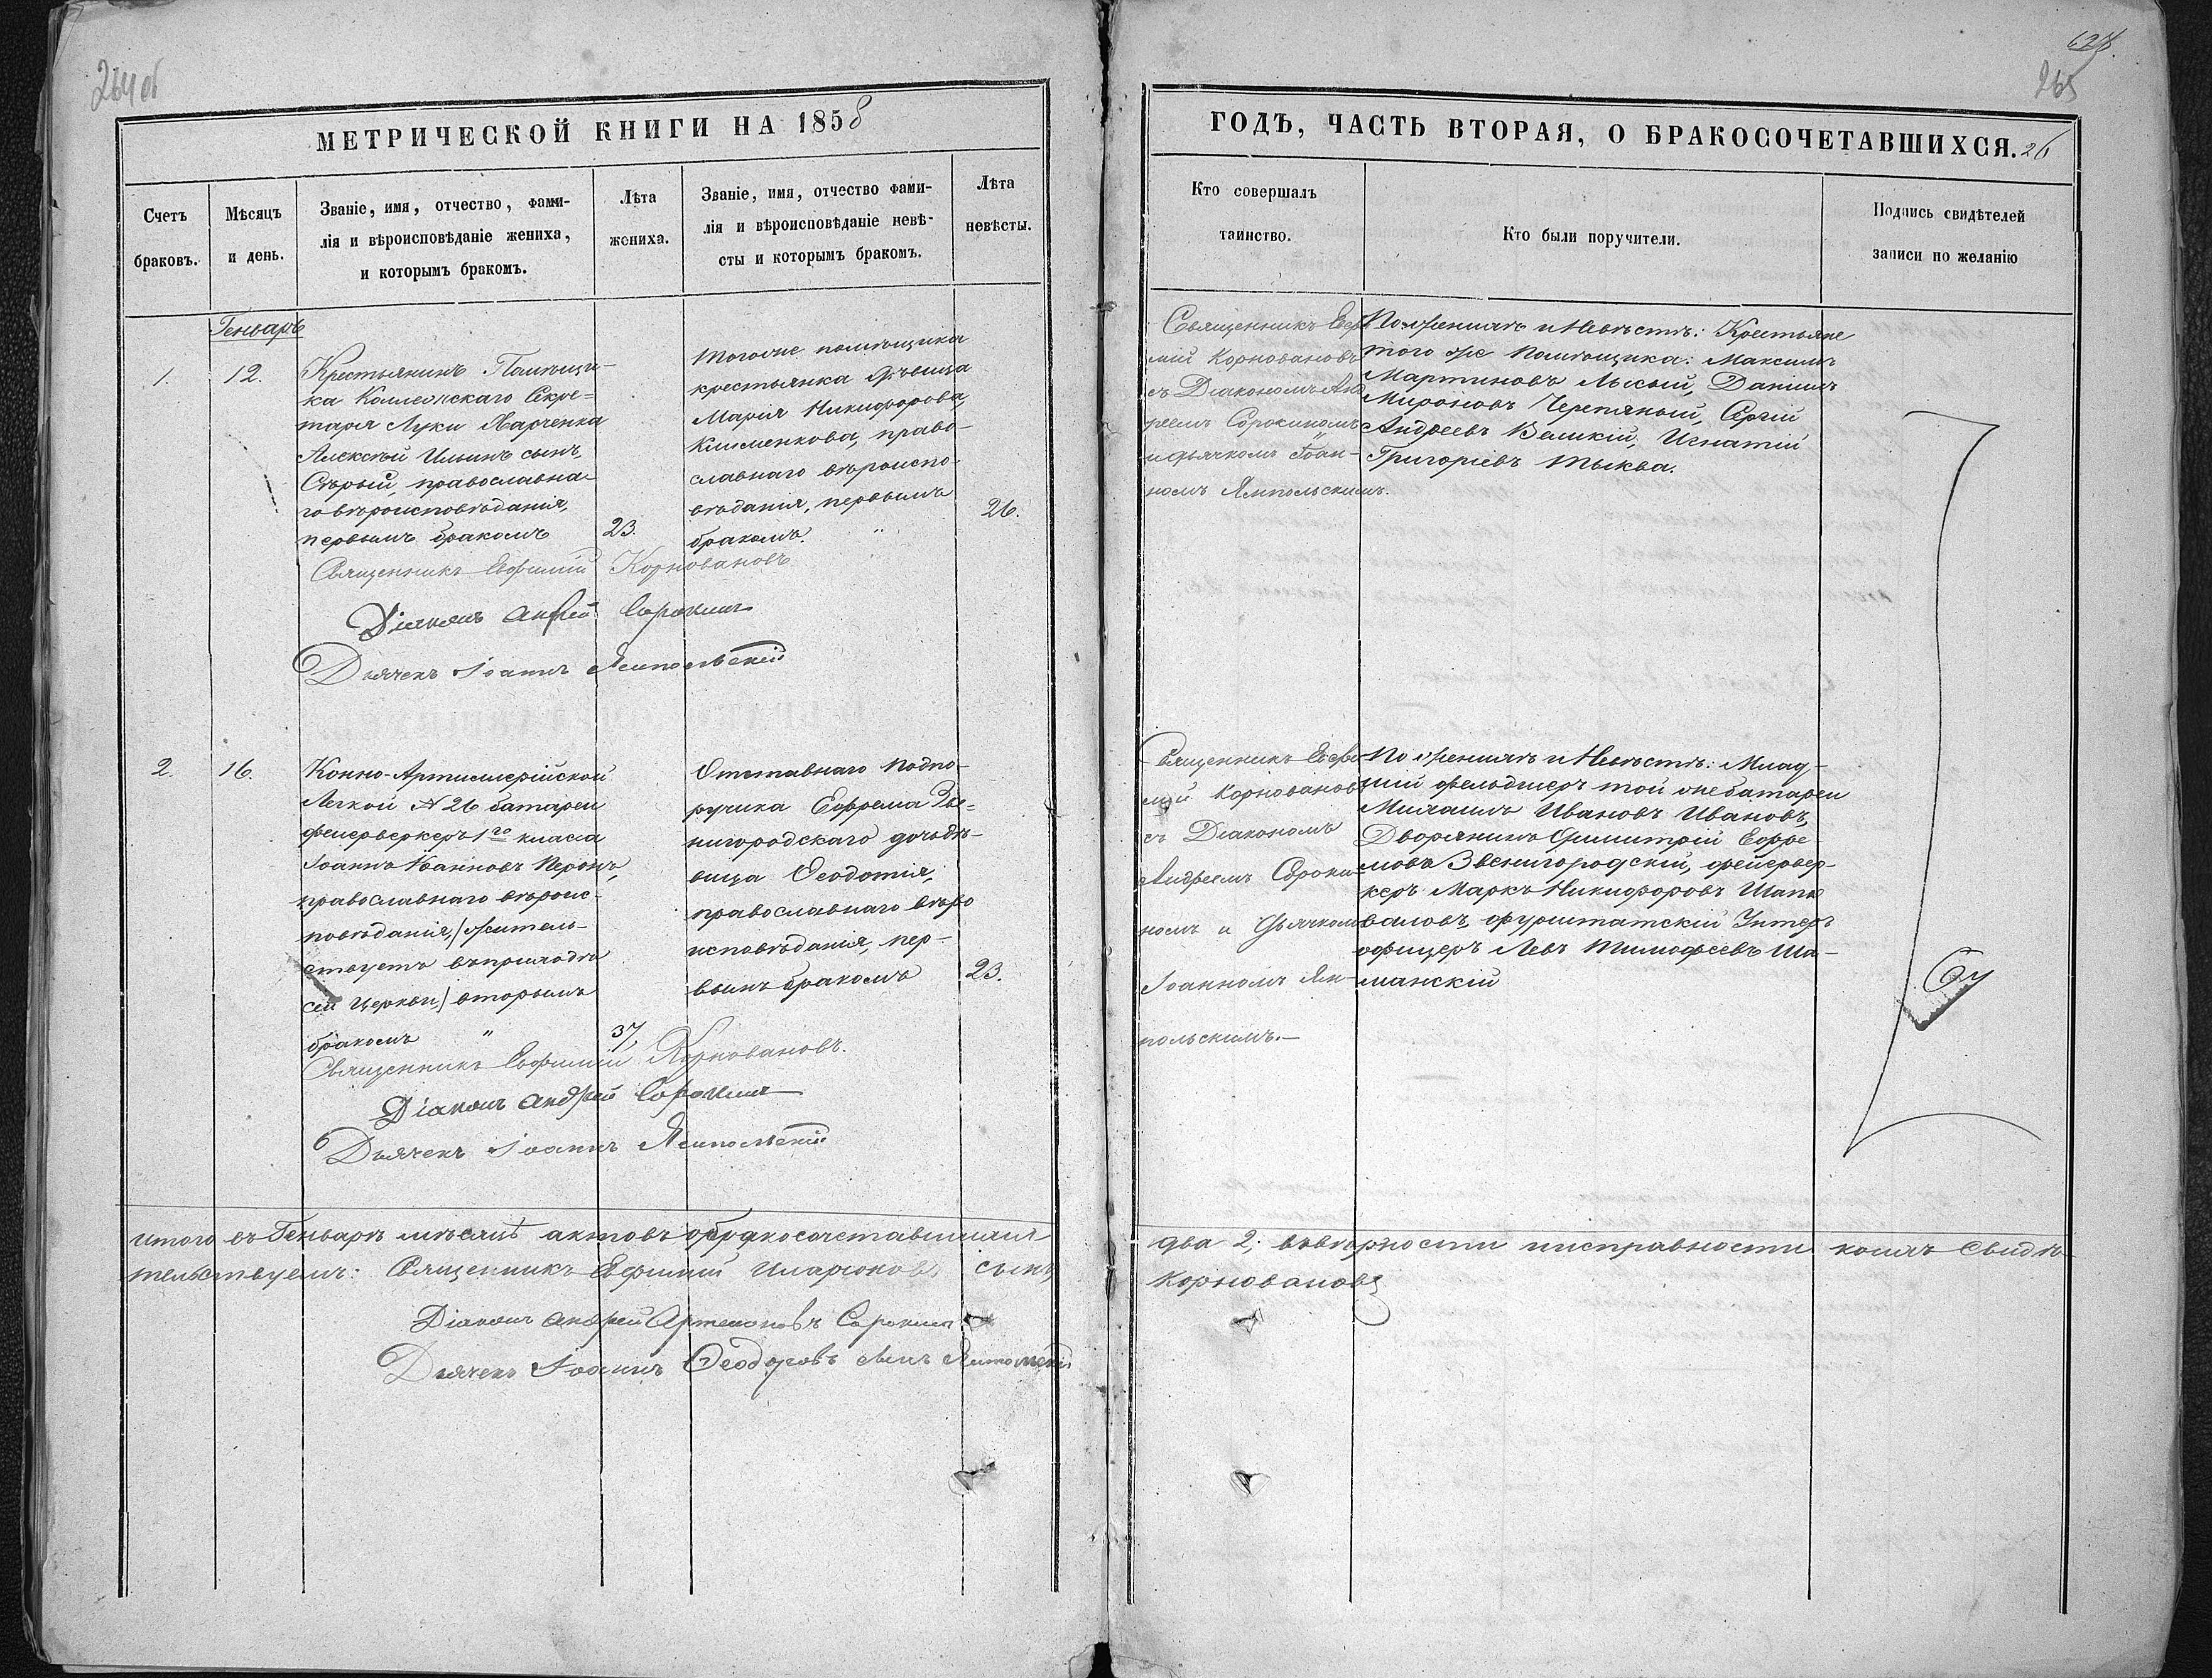 264 об
МЕТРИЧЕСКОЙ КНИГИ НА 1858
Счетъ
браковъ.
Мѣсяцъ
и день.
Званіе, имя, отчество, фами-
лія и вѣроисповѣданіе жениха,
и которымъ бракомъ.
Лѣта
жениха.
Званіе, имя, отчество фами-
лія и вѣроисповѣданіе невѣ-
сты и которымъ бракомъ.
Лѣта
невѣсты.
Генварь
1.
12.
Крестьянинъ Помѣщи-
ка Коллежскаго Секре=
таря Луки Харченка
Алексѣй Ильинъ сынъ
Сѣрый, православна-
го вѣроисповѣданія,
первымъ бракомъ
23.
Тогоже помѣщика
крестьянка дѣвица
Марія Никифорова,
Клименкова, право-
славнаго вѣроиспо-
вѣданія, первымъ
бракомъ. "
26.
Священникъ Евфимій Корновановъ
Діаконъ Андрей Сорокинъ
Дьячекъ Іоаннъ Ямпольскій
2.
16.
Конно-Артиллерійской
Легкой № 26 батареи
фейерверкеръ 1го класса
Іоаннъ Іоанновъ Перонъ,
православнаго вѣроис-
повѣданія,/жительствуетъ
въ приходѣ
сей Церкви,/ вторымъ
бракомъ "
37,
Отставнаго Подпо-
ручика Ефрема Зве=
нигородскаго дочь дѣ-
вица Ѳеодотія,
православнаго вѣро
исповѣданія, пер-
вымъ бракомъ
23.
Священникъ Евфимій Корновановъ.
Діаконъ Андрей Сорокинъ
Дьячекъ Іоаннъ Ямпольскій
итого въ Генварѣ мѣсяцѣ актовъ о бракосочетавшихся
тельствуемъ: Священникъ Евфимій Иларіоновъ сынъ
Діаконъ Андрей Артемоновъ Сорокинъ
Дьячекъ Іоаннъ Ѳеодоровъ сынъ Ямпольскій
265
ГОДЪ, ЧАСТЬ ВТОРАЯ, О БРАКОСОЧЕТАВШИХСЯ. 26
Кто совершалъ
таинство.
Кто были поручители.
Подпись свидѣтелей
записи по желанію
Священникъ Евфи
мій Корновановъ
съ Діакономъ Анд
реемъ Сорокинымъ
и дьячкомъ Іоан-
номъ Ямпольскимъ.
По женихѣ и Невѣстѣ: Крестьяне
того же Помѣщика: Максимъ
Мартиновъ Лысый, Даніилъ
Мироновъ Черепяный, Сергій
Андреевъ Великій, Игнатій
Григоріевъ Тыква.
Священникъ Евфи-
мій Корновановъ
съ Діакономъ
Андреемъ Сороки-
номъ и Дьячкомъ
Іоанномъ Ям-
польскимъ.-
По женихѣ и Невѣстѣ: Млад-
шій фельдшеръ той же батареи
Михаилъ Ивановъ Ивановъ,
Дворянинъ Димитрій Ефре-
мовъ Звенигородскій, фейервер-
керъ Маркъ Никифоровъ Шапо
валовъ, фурштатскій Унтеръ
офицеръ Левъ Тимофеевъ Ша-
манскій
два 2; въ вѣрности и исправности коихъ свидѣ-
Корновановъ